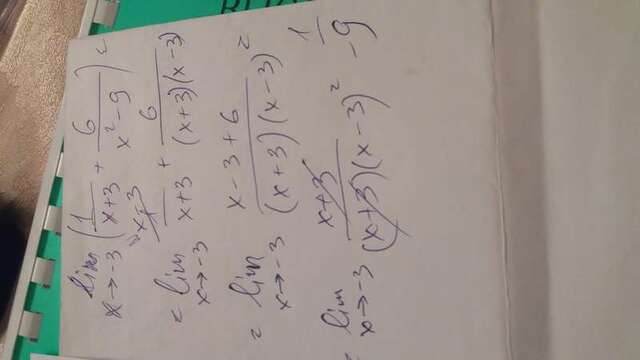 lim x→-3 (1/(x+3) + 6/(x²-9)) =
= lim x→-3 x-3 1/(x+3) + 6/((x+3)(x-3))
= lim x→-3 (x-3+6)/((x+3)(x-3)) =
= lim x→-3 (x+3)/((x+3)(x-3)) = 1/-9